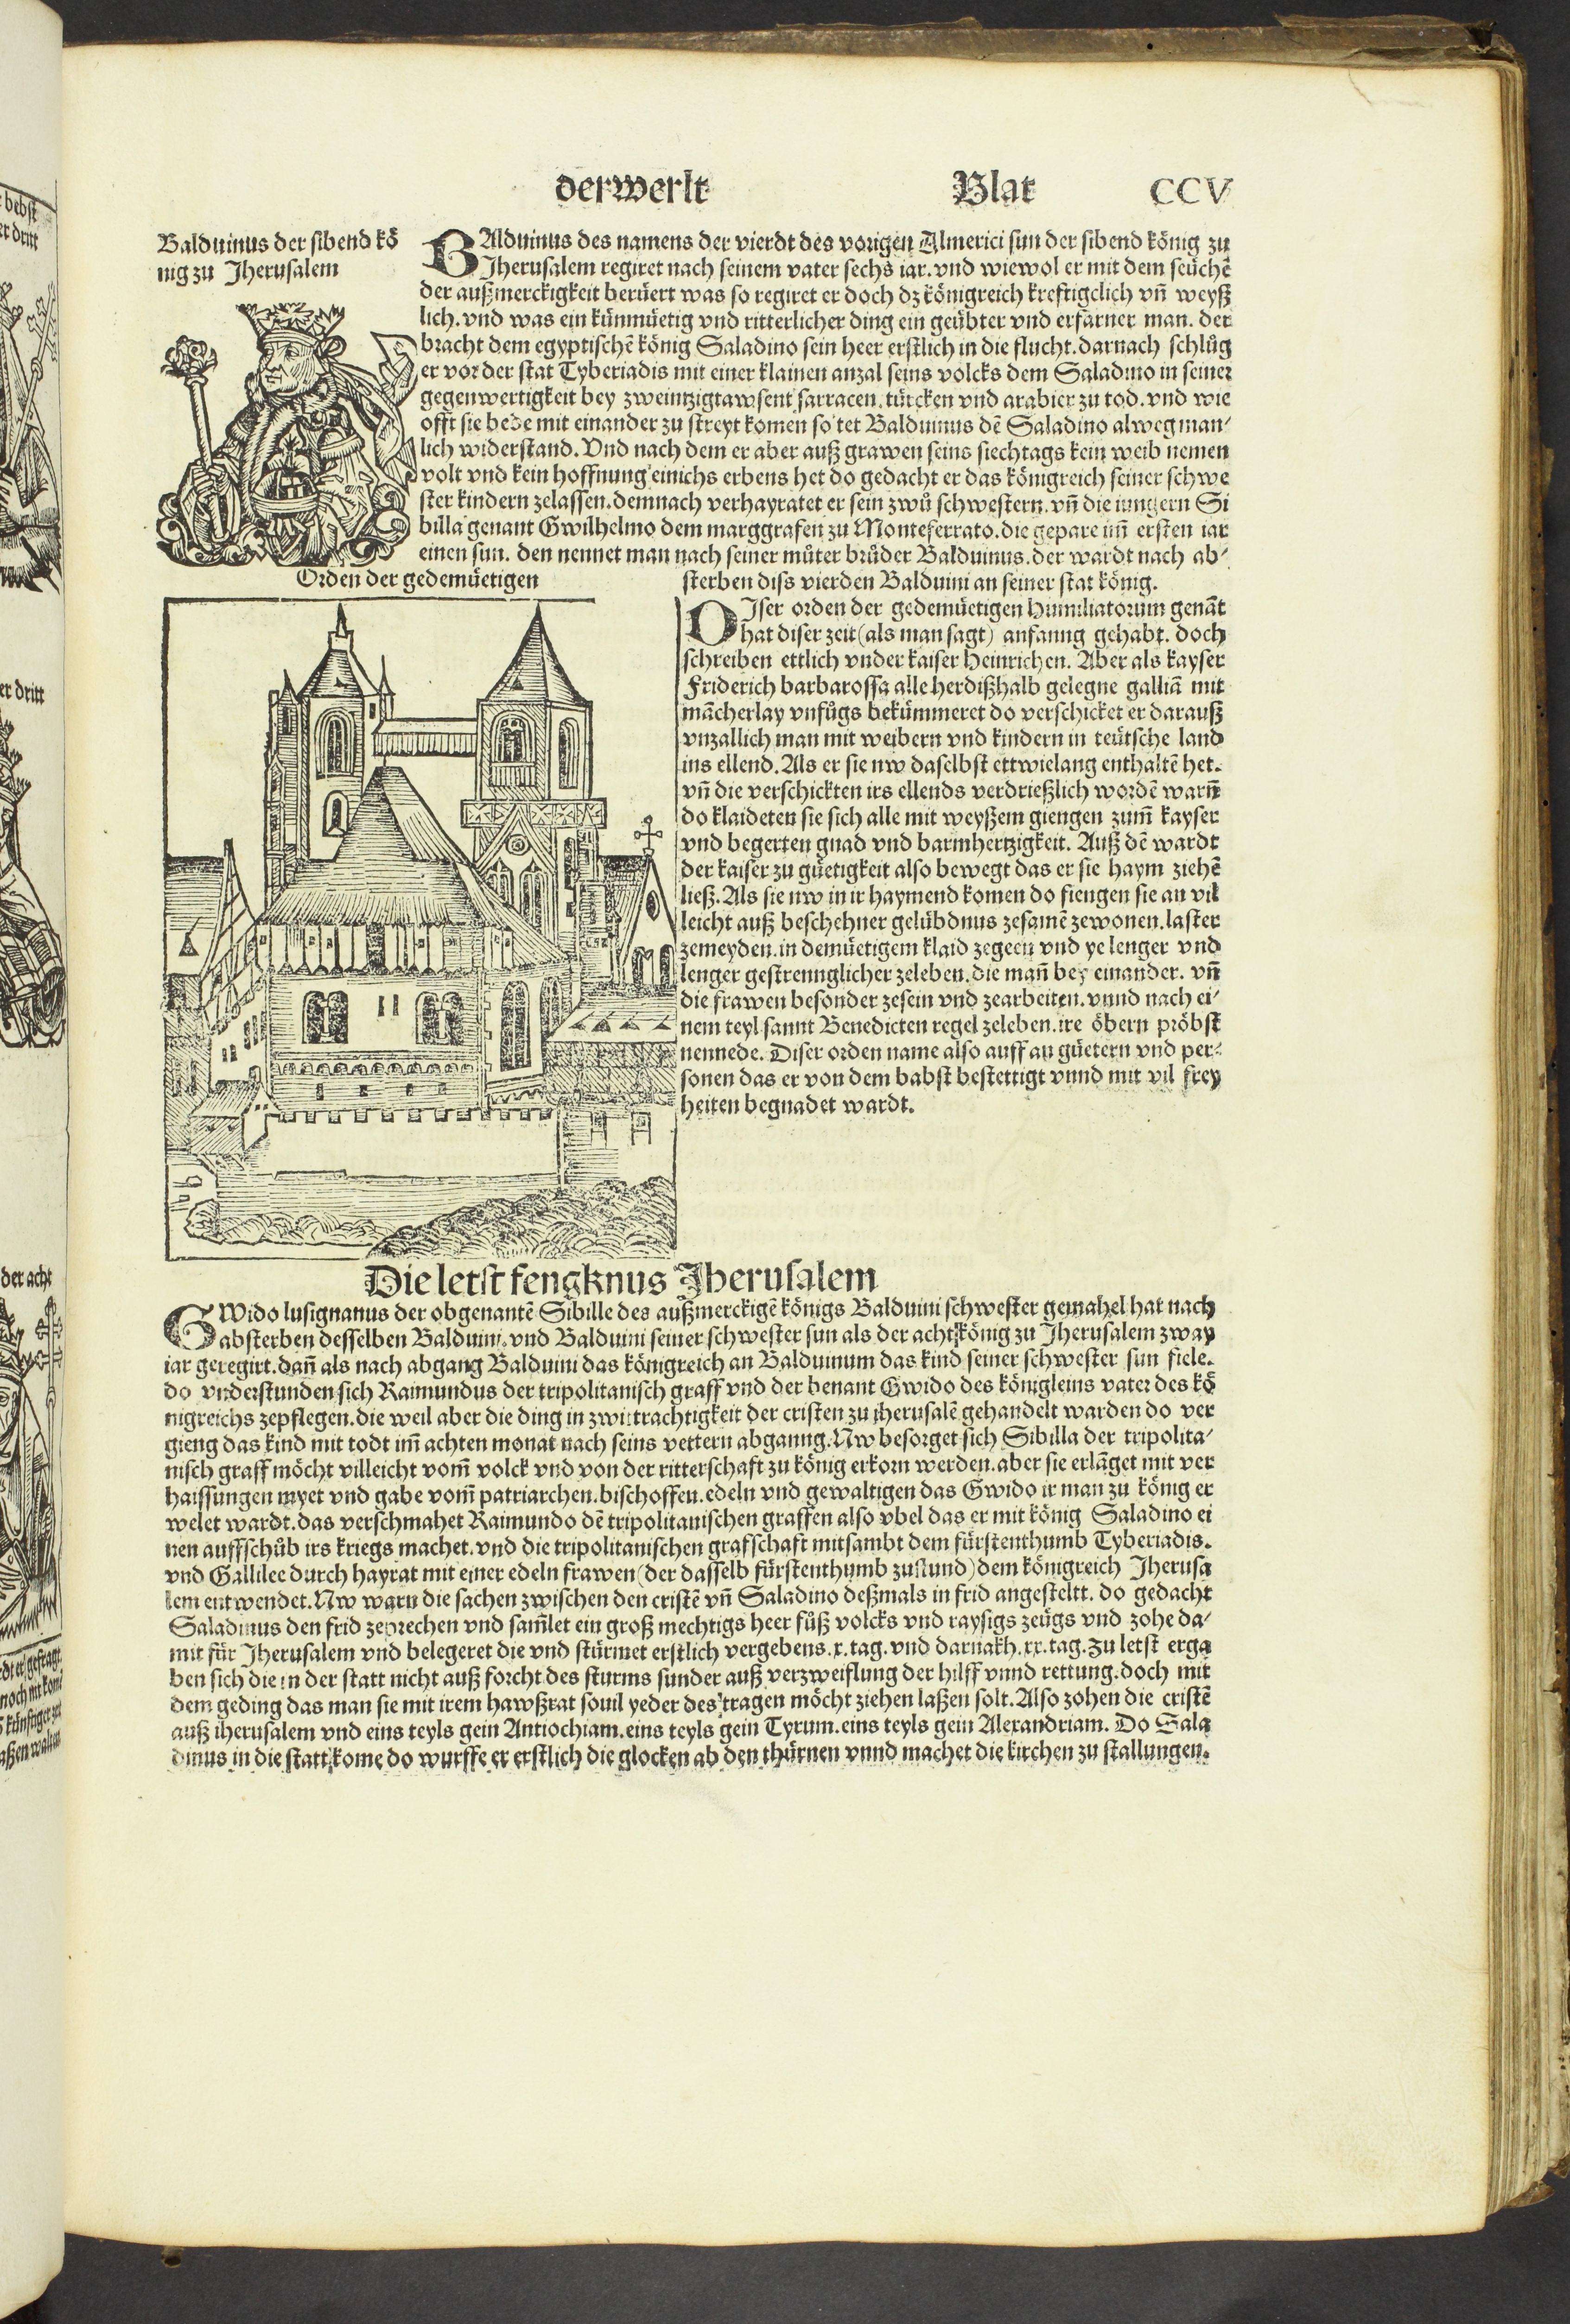 der werlt Blat CCV
Balduinus der sibend kö
nig zu Jherusalem
BAlduinus des namens der vierdt des vorigen Almerici sun der sibend könig zu
Jherusalem regiret nach seinem vater sechs iar. vnd wiewol er mit dem seüchē
der außmerckigkeit berüert was so regiret er doch dz königreich kreftigclich vñ weyß
lich. vnd was ein künmüetig vnd ritterlicher ding ein geübter vnd erfarner man. der
bracht dem egyptischē könig Saladino sein heer erstlich in die flucht. darnach schlůg
er vor der stat Tyberiadis mit einer klainen anzal seins volcks dem Saladino in seiner
gegenwertigkeit bey zweintzigtawsent sarracen, türcken vnd arabier zu tod. vnd wie
offt sie bede mit einander zu streyt komen so tet Balduinus dē Saladino alweg man⸗
lich widerstand. Vnd nach dem er aber auß grawen seins siechtags kein weib nemen
volt vnd kein hoffnung einichs erbens het do gedacht er das königreich seiner schwe
ster kindern zelassen. demnach verhayratet er sein zwů schwestern. vñ die iungern Si
billa genant Gwilhelmo dem marggrafen zu Monteferrato. die gepare im̄ ersten iar
einen sun. den nennet man nach seiner můter brůder Balduinus. der wardt nach ab⸗
sterben diss vierden Balduini an seiner stat könig.
Orden der gedemüetigen
DJser orden der gedemüetigen Humiliatorum genāt
hat diser zeit (als man sagt) anfanng gehabt. doch
schreiben ettlich vnder kaiser Heinrichen. Aber als kayser
Friderich barbarossa alle herdißhalb gelegne galliā mit
mācherlay vnfůgs bekümmeret do verschicket er darauß
vnzallich man mit weibern vnd kindern in teütsche land
ins ellend. Als er sie nw daselbst ettwielang enthaltē het.
vñ die verschickten irs ellends verdrießlich wordē warñ
do klaideten sie sich alle mit weyßem giengen zum̄ kayser
vnd begerten gnad vnd barmhertzigkeit. Auß dē wardt
der kaiser zu güetigkeit also bewegt das er sie haym ziehē
ließ. Als sie nw in ir haymend komen do fiengen sie an vil
leicht auß beschehner gelübdnus zesamē zewonen. laster
zemeyden. in demüetigem klaid zegeen vnd ye lenger vnd
lenger gestrennglicher zeleben. die mañ bey einander. vñ
die frawen besonder zesein vnd zearbeiten. vnnd nach ei⸗
nem teyl sannt Benedicten regel zeleben. ire öbern pröbst
nennede. Diser orden name also auff an güetern vnd per⸗
sonen das er von dem babst bestettigt vnnd mit vil frey
heiten begnadet wardt.
Die letst fengknus Jherusalem
GWido lusignanus der obgenantē Sibille des außmerckigē königs Balduini schwester gemahel hat nach
absterben desselben Balduini. vnd Balduini seiner schwester sun als der acht könig zu Jherusalem zway
iar geregirt. dañ als nach abgang Balduini das königreich an Balduinum das kind seiner schwester sun fiele.
do vnderstunden sich Raimundus der tripolitanisch graff vnd der benant Gwido des königleins vater des kö
nigreichs zepflegen. die weil aber die ding in zwitrachtigkeit der cristen zu jherusalē gehandelt warden do ver
gieng das kind mit todt im̄ achten monat nach seins vettern abganng. Nw besorget sich Sibilla der tripolita⸗
nisch graff möcht villeicht vom̄ volck vnd von der ritterschaft zu könig erkorn werden. aber sie erlāget mit ver
haissungen myet vnd gabe vom̄ patriarchen. bischoffen. edeln vnd gewaltigen das Gwido ir man zu könig er
welet wardt. das verschmahet Raimundo dē tripolitanischen graffen also vbel das er mit könig Saladino ei
nen auffschůb irs kriegs machet. vnd die tripolitanischen grafschaft mitsambt dem fürstenthumb Tyberiadis.
vnd Gallilee durch hayrat mit einer edeln frawen (der dasselb fürstenthumb zustund) dem königreich Jherusa
lem entwendet. Nw warn die sachen zwischen den cristē vñ Saladino deßmals in frid angesteltt. do gedacht
Saladinus den frid zeprechen vnd sam̄let ein groß mechtigs heer fůß volcks vnd raysigs zeügs vnd zohe da⸗
mit für Jherusalem vnd belegeret die vnd stürmet erstlich vergebens. x. tag. vnd darnakh. xx. tag. zu letst erga
ben sich die in der statt nicht auß forcht des sturms sunder auß verzweiflung der hilff vnnd rettung. doch mit
dem geding das man sie mit irem hawßrat souil yeder des tragen möcht ziehen laßen solt. Also zohen die cristē
auß iherusalem vnd eins teyls gein Antiochiam. eins teyls gein Tyrum. eins teyls gein Alexandriam. Do Sala
dinus in die statt kome do wurffe er erstlich die glocken ab den thürnen vnnd machet die kirchen zu stallungen.